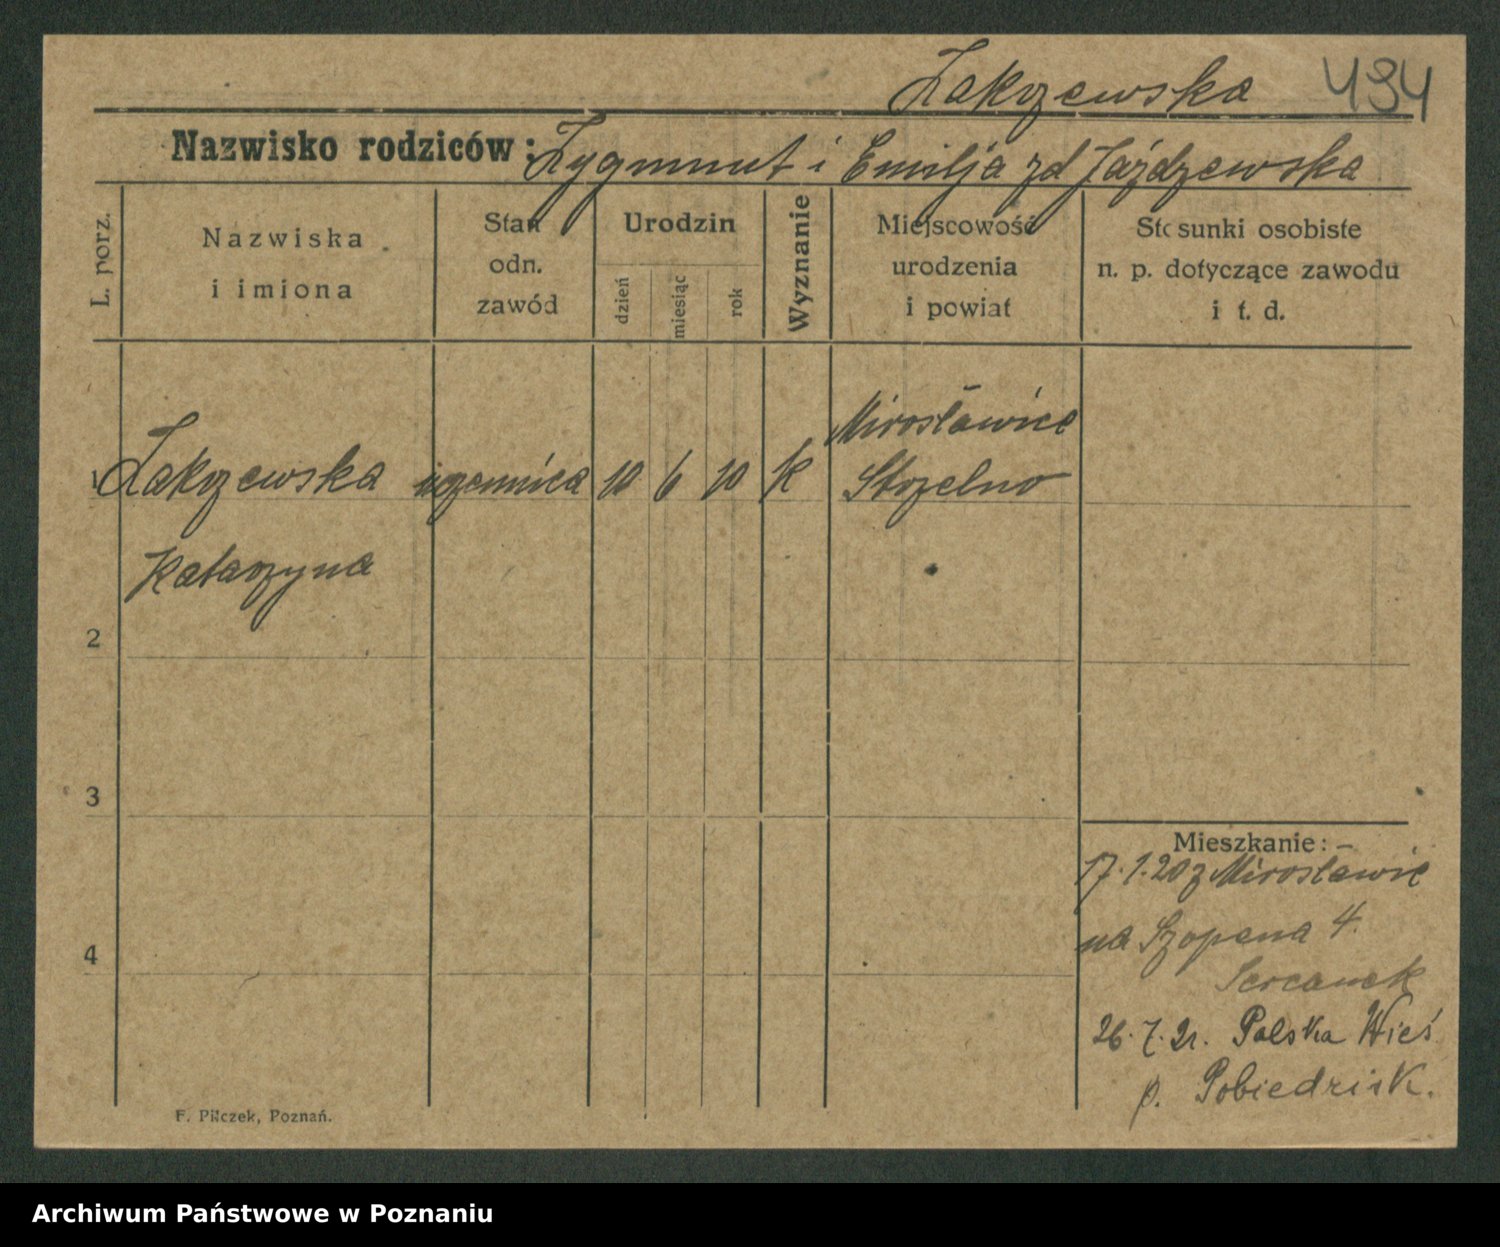 Zakrzewska 494
Nazwisko rodziców: Zygmunt i Emilja zd Jażdzewska
L. porz.
Nazwiska i imiona
Stan odn. zawód
Urodzin
dzień
miesiąc
rok
Wyznanie
Miejscowość urodzenia i powiat
Stosunki osobiste n. p. dotyczące zawodu i t. d.
Mirosławice
1 Zakrzewska uczennica 10 6 10 k Strzelno
Katarzyna
2
3
4
Mieszkanie:
17.1.20 z Mirosławic
na Szopena 4.
26.7.21. Polska Wieś
p. Pobiedzisk.
F. Pilczek, Poznań.
Archiwum Państwowe w Poznaniu